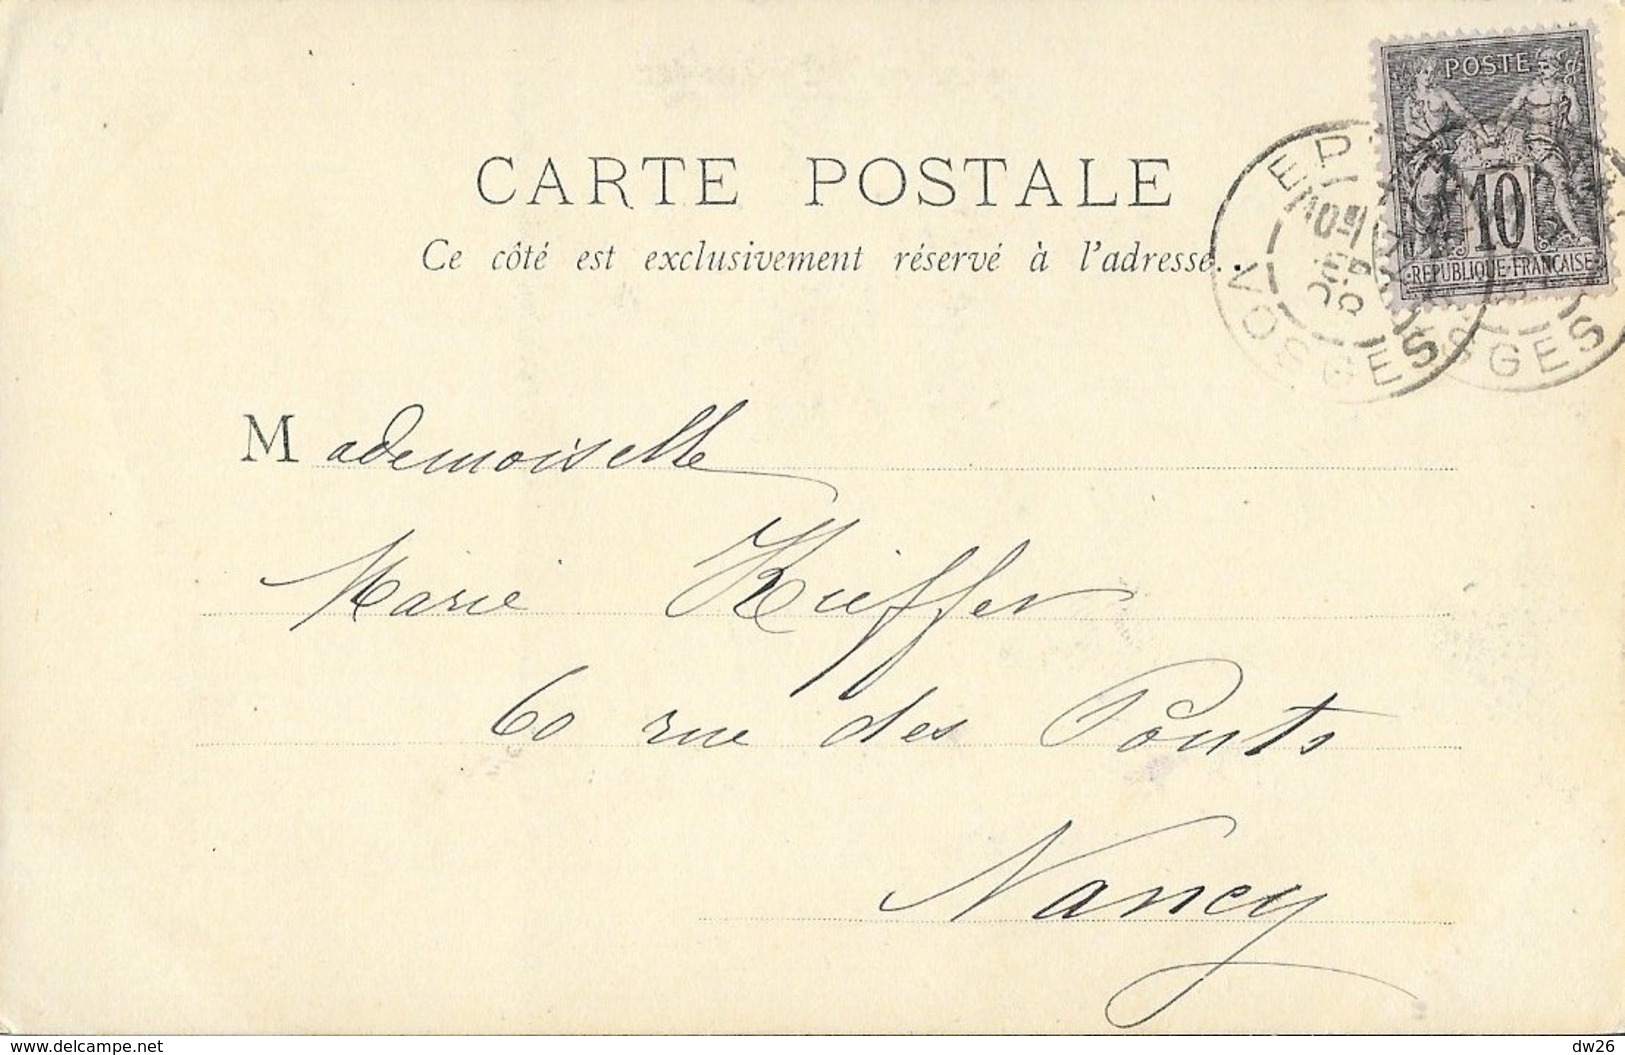 POSTE
10
REPUBLIQUE FRANCAISE
VOSGES
CARTE POSTALE
Ce côté est exclusivement réservé à l'adresse.
Mademoiselle
Marie Kieffer
60 rue des Ponts
Nancy
www.delcampe.net
dw26